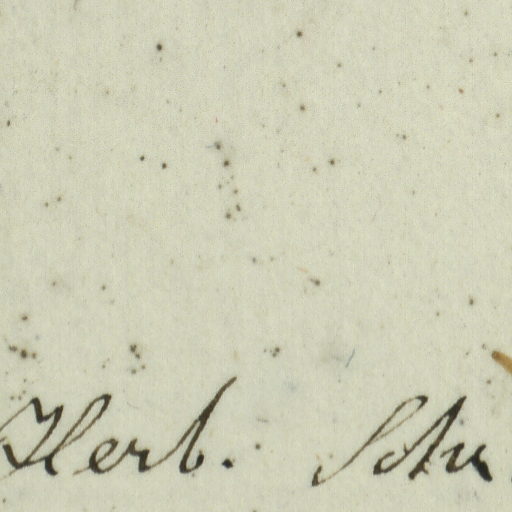 Herb. Schu